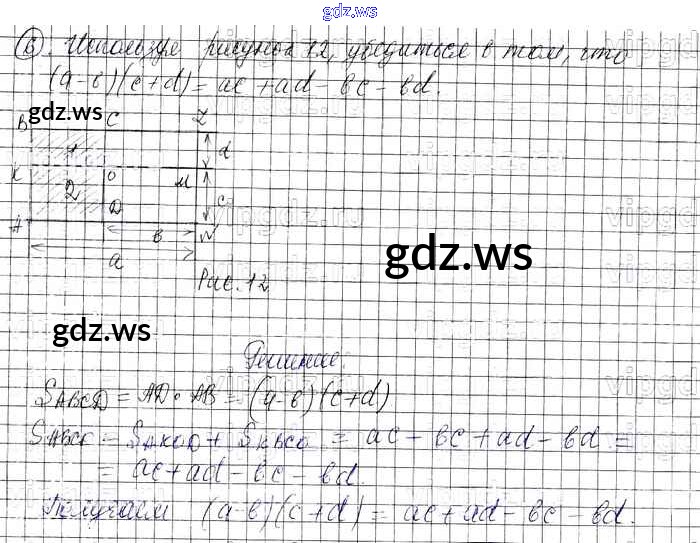 gdz.ws
6) Используя рисунок 12, убедиться в том, что
(a-b)(c+d)=ac+ad-bc-bd.
gdz.ws
B C Z
1 d
K O M
2 c
A D N
b
a
gdz.ws
Рис. 12
gdz.ws
Решение.
SABCD = AD · AB = (a-b)(c+d)
SABCD = SAKOD + SKBCO = ac-bc+ad-bd =
= ac+ad-bc-bd.
Получаем (a-b)(c+d) = ac+ad-bc-bd.